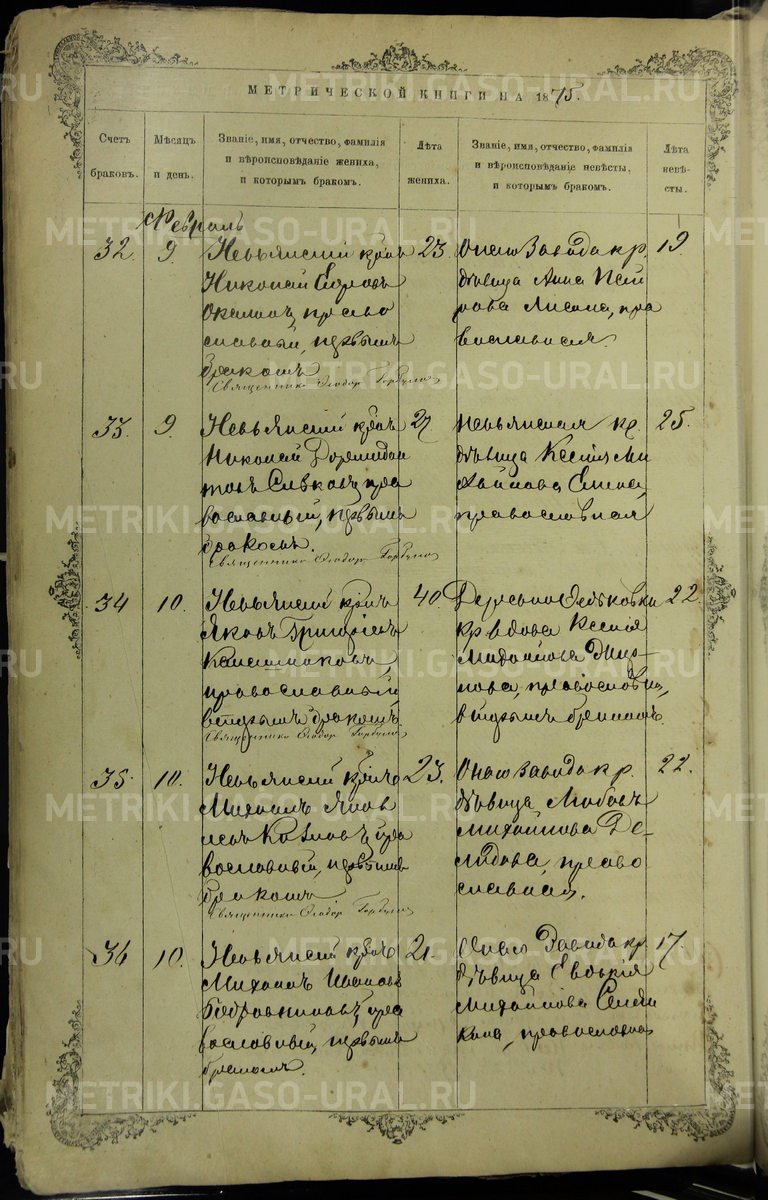 МЕТРИЧЕСКОЙ КНИГИ НА 1875.
Счетъ браковъ.
Мѣсяцъ и день.
Званіе, имя, отчество, фамилія
и вѣроисповѣданіе жениха,
и которымъ бракомъ.
Лѣта жениха.
Званіе, имя, отчество, фамилія
и вѣроисповѣданіе невѣсты,
и которымъ бракомъ.
Лѣта невѣ-
сты.
Февраль
32. 9.
Невьянскій
Николай
право
славный, первымъ
бракомъ
Священникъ Ѳеодор
23.
Онаго Завода кр.
дѣвица Анна Пет
рова пра
вославная.
19
33. 9.
Невьянскій
Николай Дормидон
товъ пра
вославный, первымъ
бракомъ.
Священникъ Ѳеодор
27
Невьянская кр.
дѣвица Ксенія Ми
хайлова
православная
25.
34 10.
Невьянскій
Яковъ Григорьевъ
православный
вторымъ бракомъ
Священникъ Ѳеодор
40.
Деревни Федьковки
кр вдова Ксенія
Михайлова
православная,
вторымъ бракомъ.
22.
35. 10.
Невьянскій
Михаилъ Яков
левъ Козловъ, пра
вославный, первымъ
бракомъ
Священникъ Ѳеодор
23.
Онаго Завода кр.
дѣвица Любовь
Михайлова Де-
мидова, право
славная.
22.
36 10.
Невьянскій
Михаилъ Ивановъ
пра
вославный, первымъ
бракомъ.
21.
Онаго Завода кр
дѣвица Евдокія
Михайлова
православная
17.
METRIKI.GASO-URAL.RU